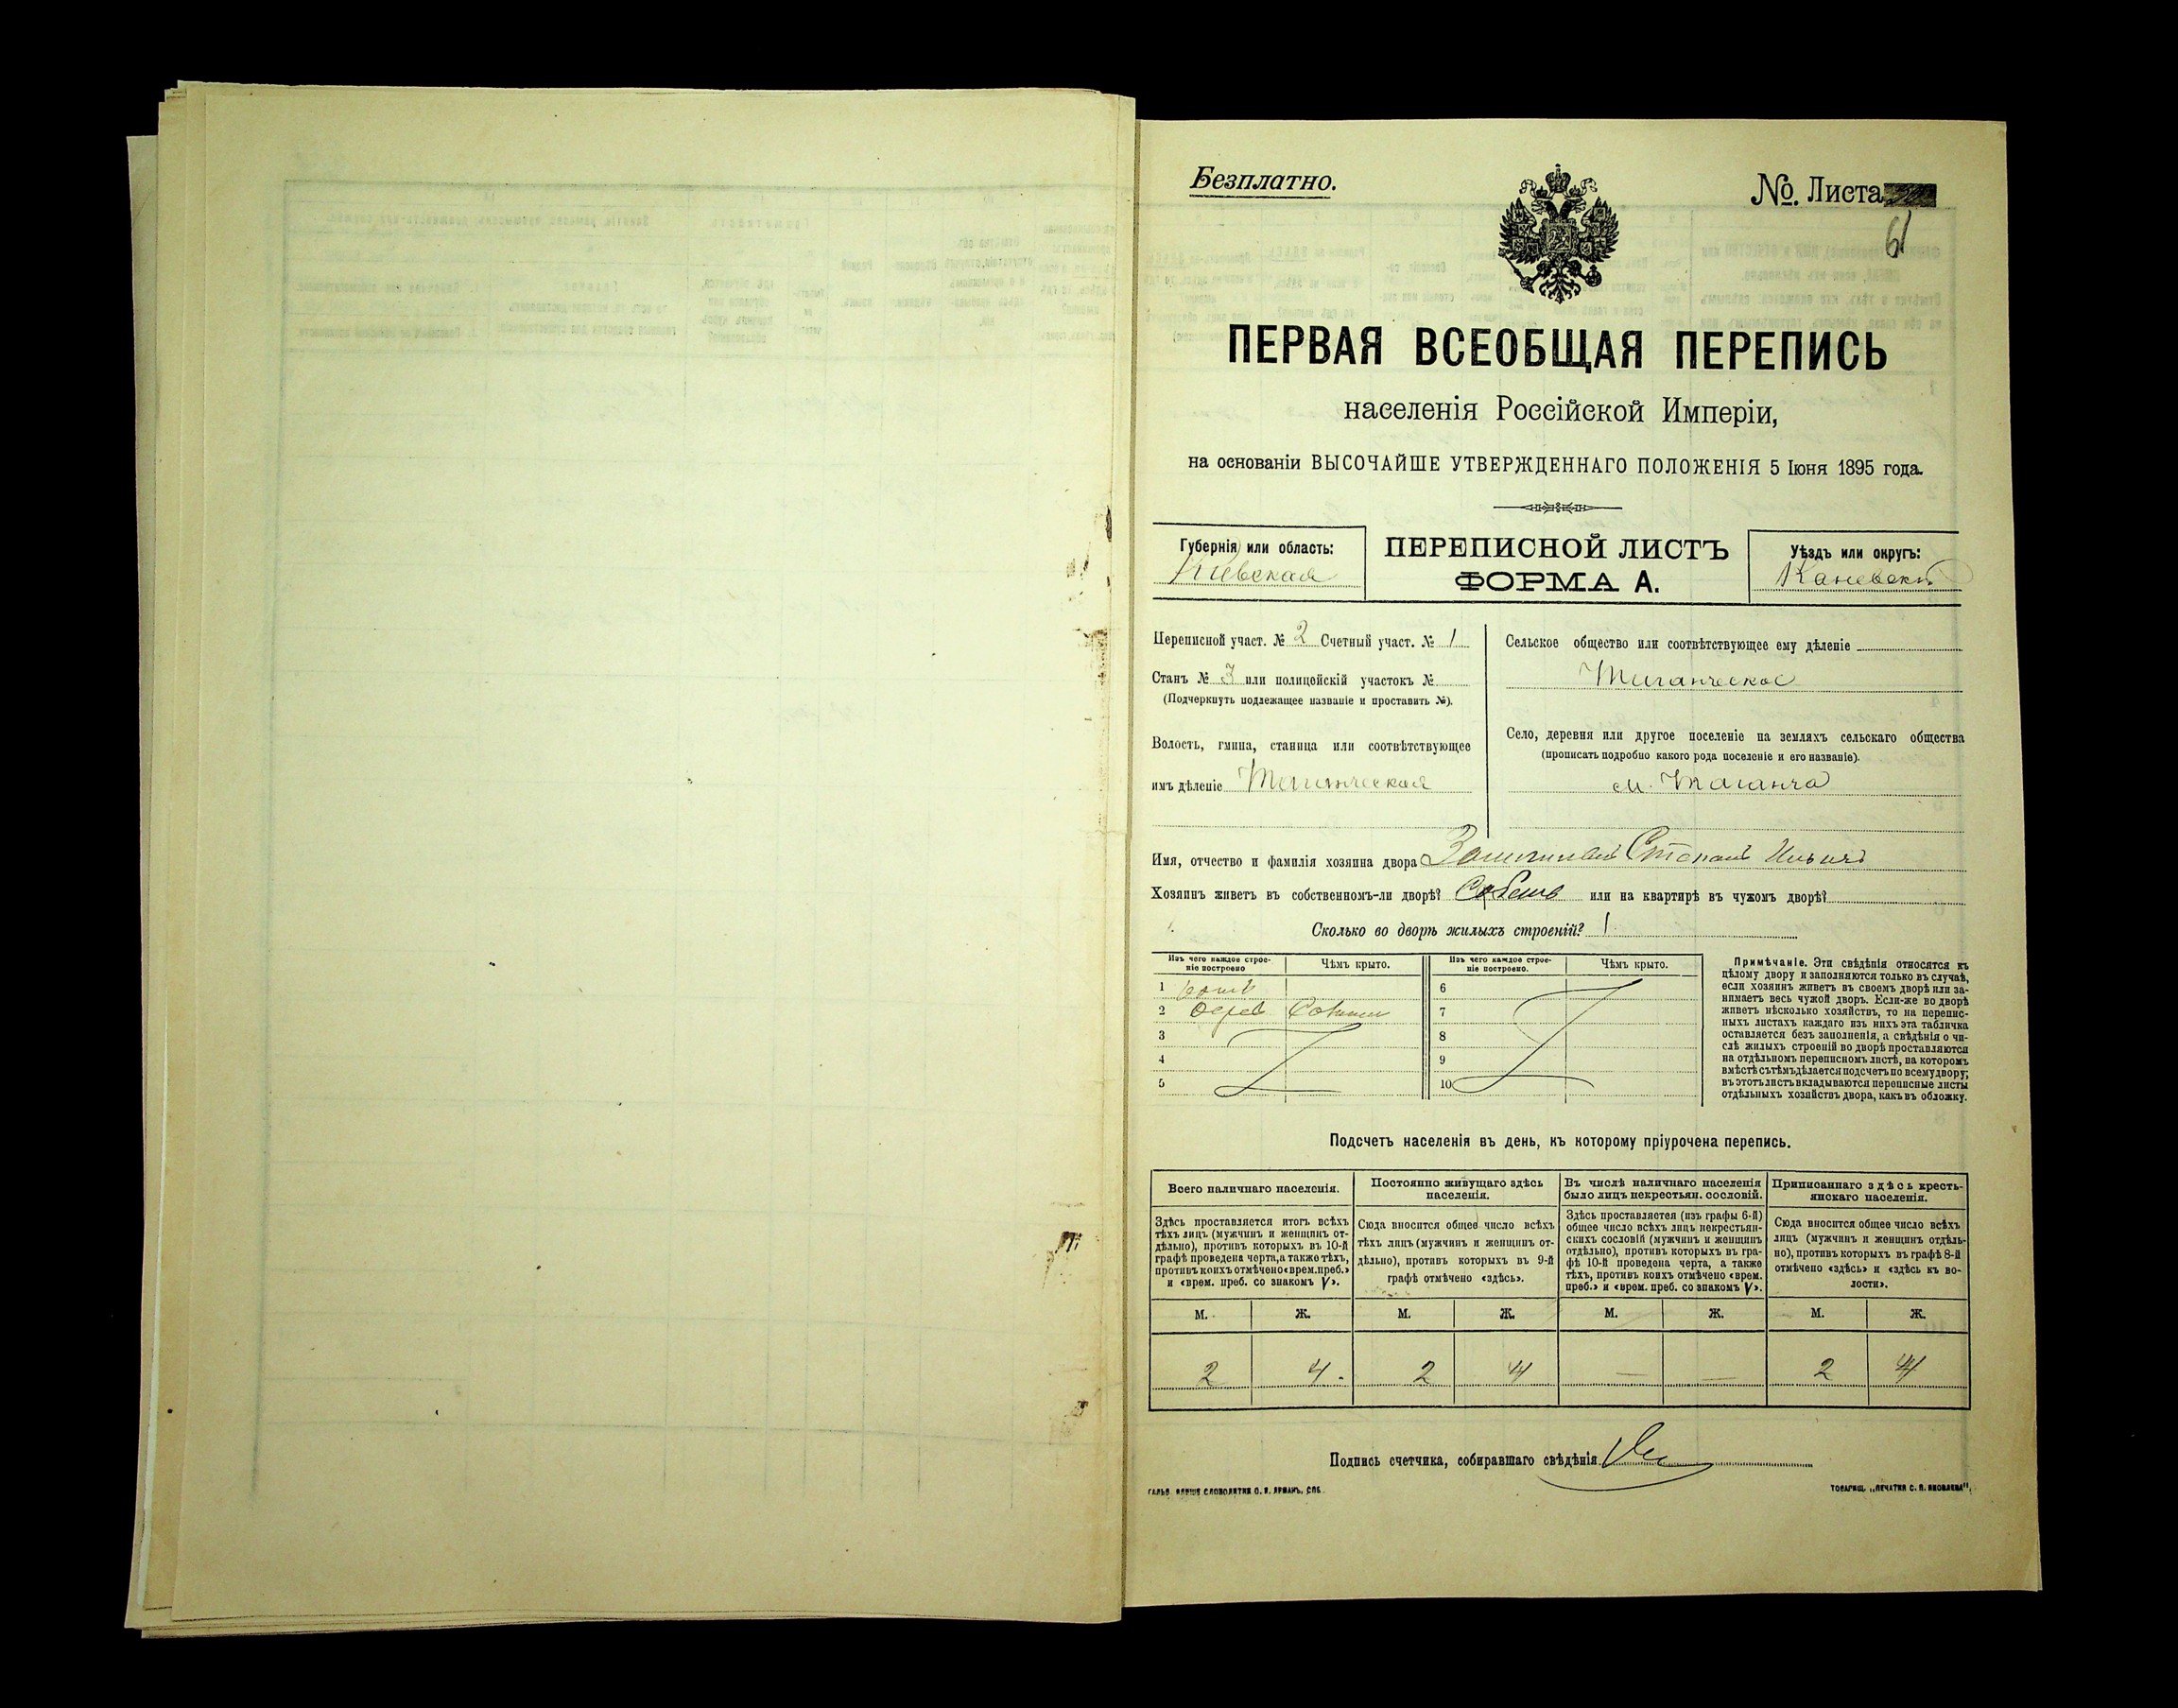 Безплатно.
№. Листа
61
ПЕРВАЯ ВСЕОБЩАЯ ПЕРЕПИСЬ
населенія Россійской Имперіи,
на основаніи ВЫСОЧАЙШЕ УТВЕРЖДЕННАГО ПОЛОЖЕНІЯ 5 Іюня 1895 года.
Губернія или область:
Кіевская
ПЕРЕПИСНОЙ ЛИСТЪ
ФОРМА А.
Уѣздъ или округъ:
Каневскій
Переписной участ. № 2 Счетный участ. № 1
Станъ № 3 или полицейскій участокъ №
(Подчеркнуть подлежащее названіе и проставить №).
Волость, гмина, станица или соотвѣтствующее
имъ дѣленіе Таганческая
Сельское общество или соотвѣтствующее ему дѣленіе
Таганческое
Село, деревня или другое поселеніе на земляхъ сельскаго общества
(прописать подробно какого рода поселеніе и его названіе).
м. Таганча
Имя, отчество и фамилія хозяина двора Степанъ Ильичъ
Хозяинъ живетъ въ собственномъ-ли дворѣ? или на квартирѣ въ чужомъ дворѣ?
Сколько во дворѣ жилыхъ строеній? 1
Изъ чего каждое строе-
ніе построено
Чѣмъ крыто.
Изъ чего каждое строе-
ніе построено.
Чѣмъ крыто.
1
2 дерев Соломы
3
4
5
6
7
8
9
10
Примѣчаніе. Эти свѣдѣнія относятся къ
цѣлому двору и заполняются только въ случаѣ,
если хозяинъ живетъ въ своемъ дворѣ или за-
нимаетъ весь чужой дворъ. Если-же во дворѣ
живетъ нѣсколько хозяйствъ, то на перепис-
ныхъ листахъ каждаго изъ нихъ эта табличка
оставляется безъ заполненія, а свѣдѣнія о чи-
слѣ жилыхъ строеній во дворѣ проставляются
на отдѣльномъ переписномъ листѣ, на которомъ
вмѣстѣ съ тѣмъ дѣлается подсчетъ по всему двору;
въ этотъ листъ вкладываются переписные листы
отдѣльныхъ хозяйствъ двора, какъ въ обложку.
Подсчетъ населенія въ день, къ которому пріурочена перепись.
Всего наличнаго населенія.
Здѣсь проставляется итогъ всѣхъ
тѣхъ лицъ (мужчинъ и женщинъ от-
дѣльно), противъ которыхъ въ 10-й
графѣ проведена черта, а также тѣхъ,
противъ коихъ отмѣчено «врем. преб.»
и «врем. преб. со знакомъ V».
Постоянно живущаго здѣсь
населенія.
Сюда вносится общее число всѣхъ
тѣхъ лицъ (мужчинъ и женщинъ от-
дѣльно), противъ которыхъ въ 9-й
графѣ отмѣчено «здѣсь».
Въ числѣ наличнаго населенія
было лицъ некрестьян. сословій.
Здѣсь проставляется (изъ графы 6-й)
общее число всѣхъ лицъ некрестьян-
скихъ сословій (мужчинъ и женщинъ
отдѣльно), противъ которыхъ въ гра-
фѣ 10-й проведена черта, а также
тѣхъ, противъ коихъ отмѣчено «врем.
преб.» и «врем. преб. со знакомъ V».
Приписаннаго здѣсь кресть-
янскаго населенія.
Сюда вносится общее число всѣхъ
лицъ (мужчинъ и женщинъ отдѣль-
но), противъ которыхъ въ графѣ 8-й
отмѣчено «здѣсь» и «здѣсь къ во-
лости».
М. Ж. М. Ж. М. Ж. М. Ж.
2 4 2 4 — — 2 4
Подпись счетчика, собиравшаго свѣдѣнія
ТОВАРИЩ. „ПЕЧАТНЯ С. П. ЯКОВЛЕВА“.